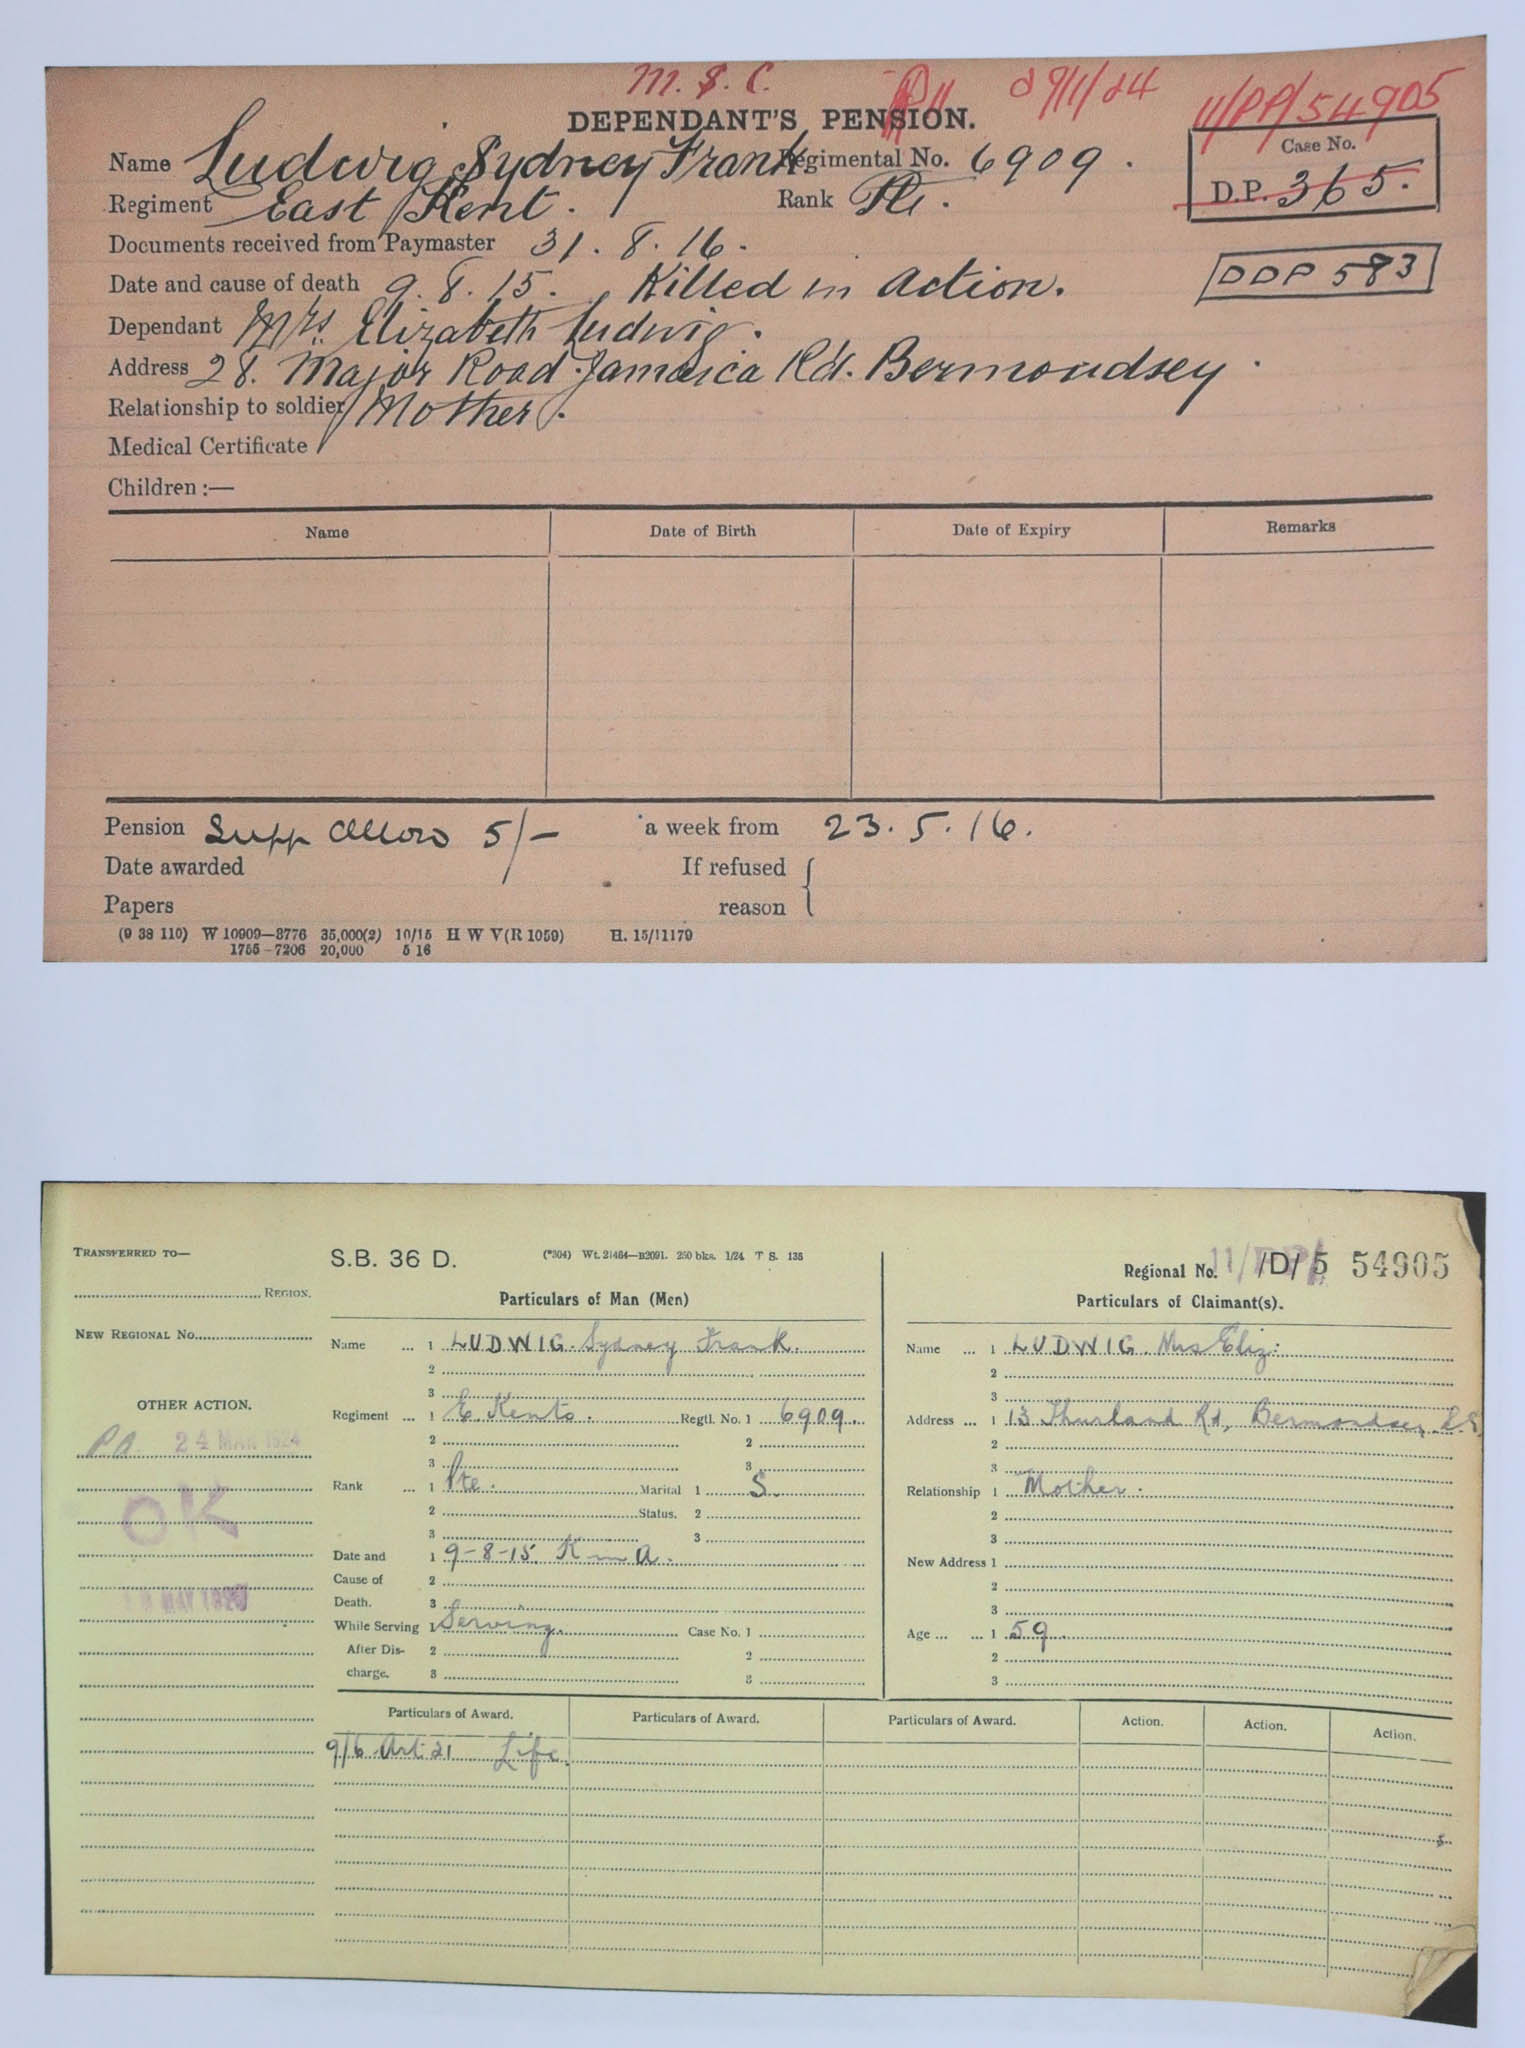 M. S. C.
29/1/24
11/PP/54905
DEPENDANT'S PENSION.
Case No.
D.P. 365.
Name Ludwig Sydney Frank Regimental No. 6909.
Regiment East Kent. Rank Pte.
Documents received from Paymaster 31.8.16.
DDP 583
Date and cause of death 9.8.15. Killed in Action.
Dependant Mrs Elizabeth Ludwig.
Address 28. Major Road. Jamaica Rd. Bermondsey.
Relationship to soldier Mother.
Medical Certificate
Children:—
Name Date of Birth Date of Expiry Remarks
Pension Supp Allow 5/- a week from 23.5.16.
Date awarded If refused
Papers reason
(9 38 110) W 10909—3776 35,000(2) 10/15 H W V(R 1059) H. 15/1179
1755-7206 20,000 5 16
TRANSFERRED TO—
REGION.
NEW REGIONAL No.
OTHER ACTION.
24 MAR 1924
OK
MAY
S.B. 36 D. (*304) Wt. 21464—B2091. 250 bks. 1/24 T S. 135
Particulars of Man (Men)
Name ... 1 LUDWIG. Sydney Frank.
2
3
Regiment ... 1 E. Kents. Regtl. No. 1 6909.
2 2
3 3
Rank ... 1 Pte. Marital 1 S.
2 Status. 2
3 3
Date and 1 9-8-15 K in A.
Cause of 2
Death. 3
While Serving 1 Serving. Case No. 1
After Dis- 2 2
charge. 3 3
Regional No. 11/ /D/ 5 54905
Particulars of Claimant(s).
Name ... 1 LUDWIG. Mrs Eliz:
2
3
Address ... 1 13 Thurland Rd, Bermondsey S.E.
2
3
Relationship 1 Mother.
2
3
New Address 1
2
3
Age ... ... 1 59.
2
3
Particulars of Award. Particulars of Award. Particulars of Award. Action. Action. Action.
9/6 Art 21 Life.